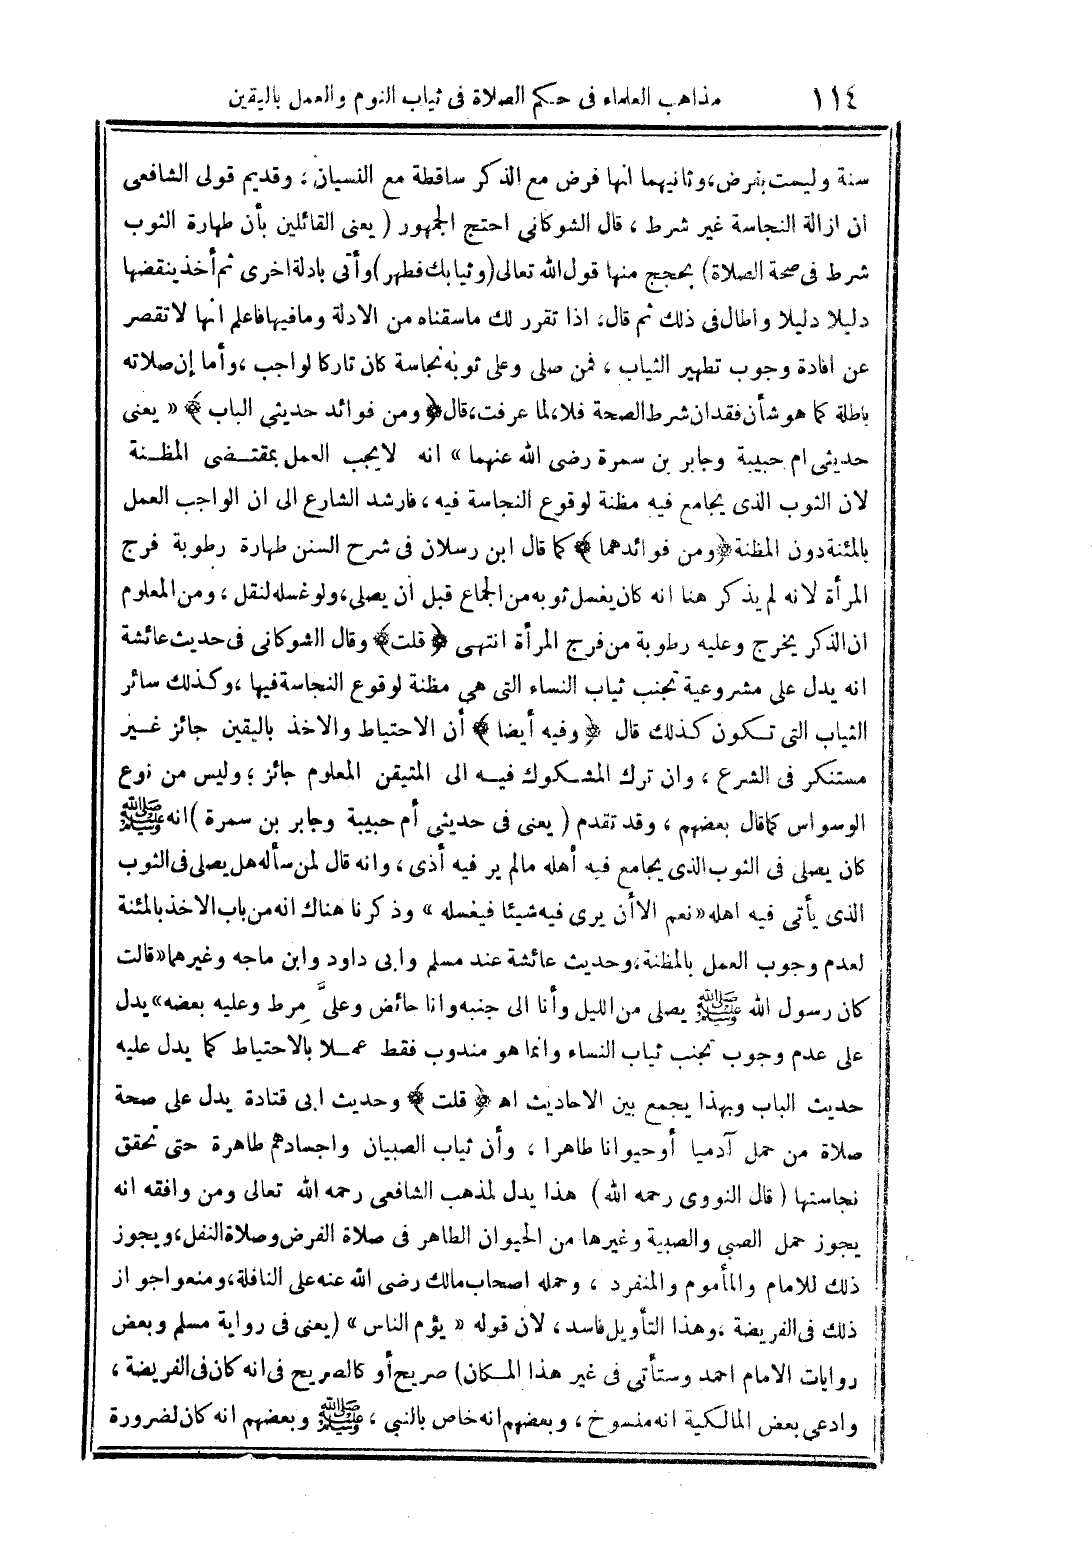 ١١٤ مذاهب العلماء فى حكم الصلاة فى ثياب النوم والعمل باليقين
سنة وليست بفرض، وثانيهما انها فرض مع الذكر ساقطة مع النسيان، وقديم قولى الشافعى
ان ازالة النجاسة غير شرط، قال الشوكانى احتج الجمهور ( يعنى القائلين بأن طهارة الثوب
شرط فى صحة الصلاة) بحجج منها قول الله تعالى (وثيابك فطهر) وأتى بادلة اخرى ثم أخذ ينقضها
دليلا دليلا واطال فى ذلك ثم قال، اذا تقرر لك ماسقناه من الادلة ومافيها فاعلم انها لا تقصر
عن افادة وجوب تطهير الثياب، فمن صلى وعلى ثوبه نجاسة كان تاركا لواجب، وأما إن صلاته
باطلة كما هو شأن فقدان شرط الصحة فلا، لما عرفت، قال ﴿ ومن فوائد حديثى الباب ﴾ « يعنى
حديثى ام حبيبة وجابر بن سمرة رضى الله عنهما » انه لايجب العمل بمقتضى المظنة
لان الثوب الذى يجامع فيه مظنة لوقوع النجاسة فيه، فارشد الشارع الى ان الواجب العمل
بالمئنة دون المظنة ﴿ ومن فوائدهما ﴾ كما قال ابن رسلان فى شرح السنن طهارة رطوبة فرج
المرأة لانه لم يذكر هنا انه كان يغسل ثوبه من الجماع قبل ان يصلى، ولو غسله لنقل، ومن المعلوم
ان الذكر يخرج وعليه رطوبة من فرج المرأة انتهى ﴿ قلت ﴾ وقال الشوكانى فى حديث عائشة
انه يدل على مشروعية تجنب ثياب النساء التى هى مظنة لوقوع النجاسة فيها، وكذلك سائر
الثياب التى تكون كذلك قال ﴿ وفيه أيضا ﴾ أن الاحتياط والاخذ باليقين جائز غير
مستنكر فى الشرع، وان ترك المشكوك فيه الى المتيقن المعلوم جائز؛ وليس من نوع
الوسواس كما قال بعضهم، وقد تقدم ( يعنى فى حديثى أم حبيبة وجابر بن سمرة ) انه ﷺ
كان يصلى فى الثوب الذى يجامع فيه أهله مالم ير فيه أذى، وانه قال لمن سأله هل يصلى فى الثوب
الذى يأتى فيه اهله « نعم الا أن يرى فيه شيئا فيغسله » وذكرنا هناك انه من باب الاخذ بالمئنة
لعدم وجوب العمل بالمظنة، وحديث عائشة عند مسلم وابى داود وابن ماجه وغيرهما « قالت
كان رسول الله ﷺ يصلى من الليل وأنا الى جنبه وانا حائض وعلىَّ مِرط وعليه بعضه » يدل
على عدم وجوب تجنب ثياب النساء وانما هو مندوب فقط عملا بالاحتياط كما يدل عليه
حديث الباب وبهذا يجمع بين الاحاديث اه ﴿ قلت ﴾ وحديث ابى قتادة يدل على صحة
صلاة من حمل آدميا أو حيوانا طاهرا، وأن ثياب الصبيان واجسادهم طاهرة حتى تحقق
نجاستها ( قال النووى رحمه الله ) هذا يدل لمذهب الشافعى رحمه الله تعالى ومن وافقه انه
يجوز حمل الصبى والصبية وغيرها من الحيوان الطاهر فى صلاة الفرض وصلاة النفل، ويجوز
ذلك للامام والمأموم والمنفرد، وحمله اصحاب مالك رضى الله عنه على النافلة، ومنعوا جواز
ذلك فى الفريضة، وهذا التأويل فاسد، لان قوله « يؤم الناس » (يعنى فى رواية مسلم وبعض
روايات الامام احمد وستأتى فى غير هذا المكان) صريح أو كالصريح فى انه كان فى الفريضة،
وادعى بعض المالكية انه منسوخ، وبعضهم انه خاص بالنبى، ﷺ وبعضهم انه كان لضرورة